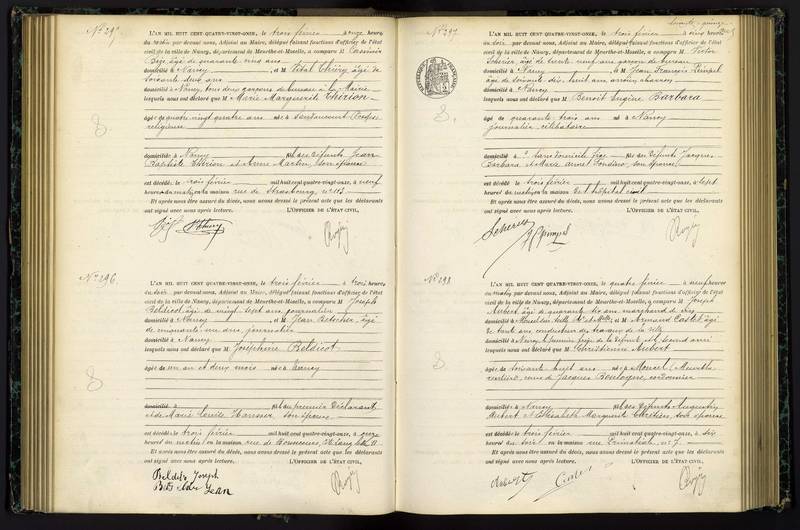 N° 29
L'AN MIL HUIT CENT QUATRE-VINGT-ONZE, le trois février à onze heures
du matin par devant nous, Adjoint au Maire, délégué faisant fonctions d'officier de l'état
civil de la ville de Nancy, département de Meurthe-et-Moselle, a comparu M Casimir
âgé de quarante cinq ans
domicilié à Nancy, et M Vital Thiéry âgé de
soixante deux ans
domicilié à Nancy, tous deux garçons de bureau à la Mairie
lesquels nous ont déclaré que M Marie Marguerite Thirion
âgée de quatre vingt quatre ans née à
religieuse
domiciliée à Nancy fille des défunts Jean
Baptiste Thirion et Anne Martin, son épouse
est décédée le trois février mil huit cent quatre-vingt-onze, à neuf
heures du matin en la maison rue de Strasbourg, n° 113
Et après nous être assuré du décès, nous avons dressé le présent acte que les déclarants
ont signé avec nous après lecture. L'OFFICIER DE L'ÉTAT CIVIL,
N° 296
L'AN MIL HUIT CENT QUATRE-VINGT-ONZE, le trois février à trois heures
du soir par devant nous, Adjoint au Maire, délégué faisant fonctions d'officier de l'état
civil de la ville de Nancy, département de Meurthe-et-Moselle, a comparu M Joseph
Beldicot âgé de vingt sept ans journalier
domicilié à Nancy, et M Jean Betscher, âgé
de cinquante un ans, journalier
domicilié à Nancy
lesquels nous ont déclaré que M Joséphine Beldicot
âgée de un an et deux mois née à Nancy
domiciliée à fille du premier Déclarant
et de Marie son épouse
est décédée le trois février mil huit cent quatre-vingt-onze, à onze
heures du matin en la maison rue de
Et après nous être assuré du décès, nous avons dressé le présent acte que les déclarants
ont signé avec nous après lecture. L'OFFICIER DE L'ÉTAT CIVIL,
Joseph
Jean
N° 297
L'AN MIL HUIT CENT QUATRE-VINGT-ONZE, le trois février à cinq heures
du soir par devant nous, Adjoint au Maire, délégué faisant fonctions d'officier de l'état
civil de la ville de Nancy, département de Meurthe-et-Moselle, a comparu M Victor
Scherier, âgé de trente neuf ans garçon de bureau
domicilié à Nancy, et M Jean François
âgé de soixante dix huit ans
domicilié à Nancy
lesquels nous ont déclaré que M Benoît Eugène Barbara
âgé de quarante trois ans né à Nancy
journalier célibataire
domicilié à sans domicile fixe fils des défunts Jacques
Barbara et Marie son épouse
est décédé le trois février mil huit cent quatre-vingt-onze, à sept
heures du matin en la maison de l'hôpital civil
Et après nous être assuré du décès, nous avons dressé le présent acte que les déclarants
ont signé avec nous après lecture. L'OFFICIER DE L'ÉTAT CIVIL,
N° 298
L'AN MIL HUIT CENT QUATRE-VINGT-ONZE, le quatre février à neuf heures
du matin par devant nous, Adjoint au Maire, délégué faisant fonctions d'officier de l'état
civil de la ville de Nancy, département de Meurthe-et-Moselle, a comparu M Joseph
Aubert âgé de quarante six ans marchand de
domicilié à et M Armand Castel âgé
de trente ans conducteur des travaux de la ville
domicilié à Nancy, le premier frère de la défunte et le second ami
lesquels nous ont déclaré que M Chrétienne Aubert
âgée de soixante huit ans née à Moncel (Meurthe
veuve de Jacques Boulogne cordonnier
domiciliée à Nancy fille des défunts Augustin
Aubert et Elisabeth Marguerite Chrétien, son épouse
est décédée le trois février mil huit cent quatre-vingt-onze, à six
heures du soir en la maison rue Primatiale n° 7
Et après nous être assuré du décès, nous avons dressé le présent acte que les déclarants
ont signé avec nous après lecture. L'OFFICIER DE L'ÉTAT CIVIL,